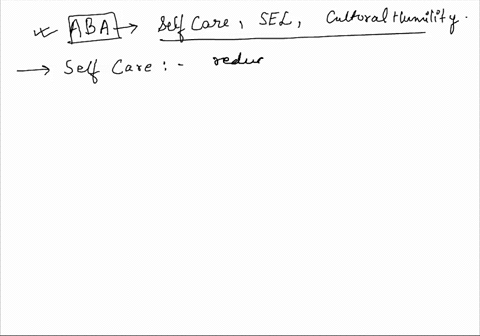 * ABA → Self Care, SEL, Cultural Humility.
→ Self Care :- reduc